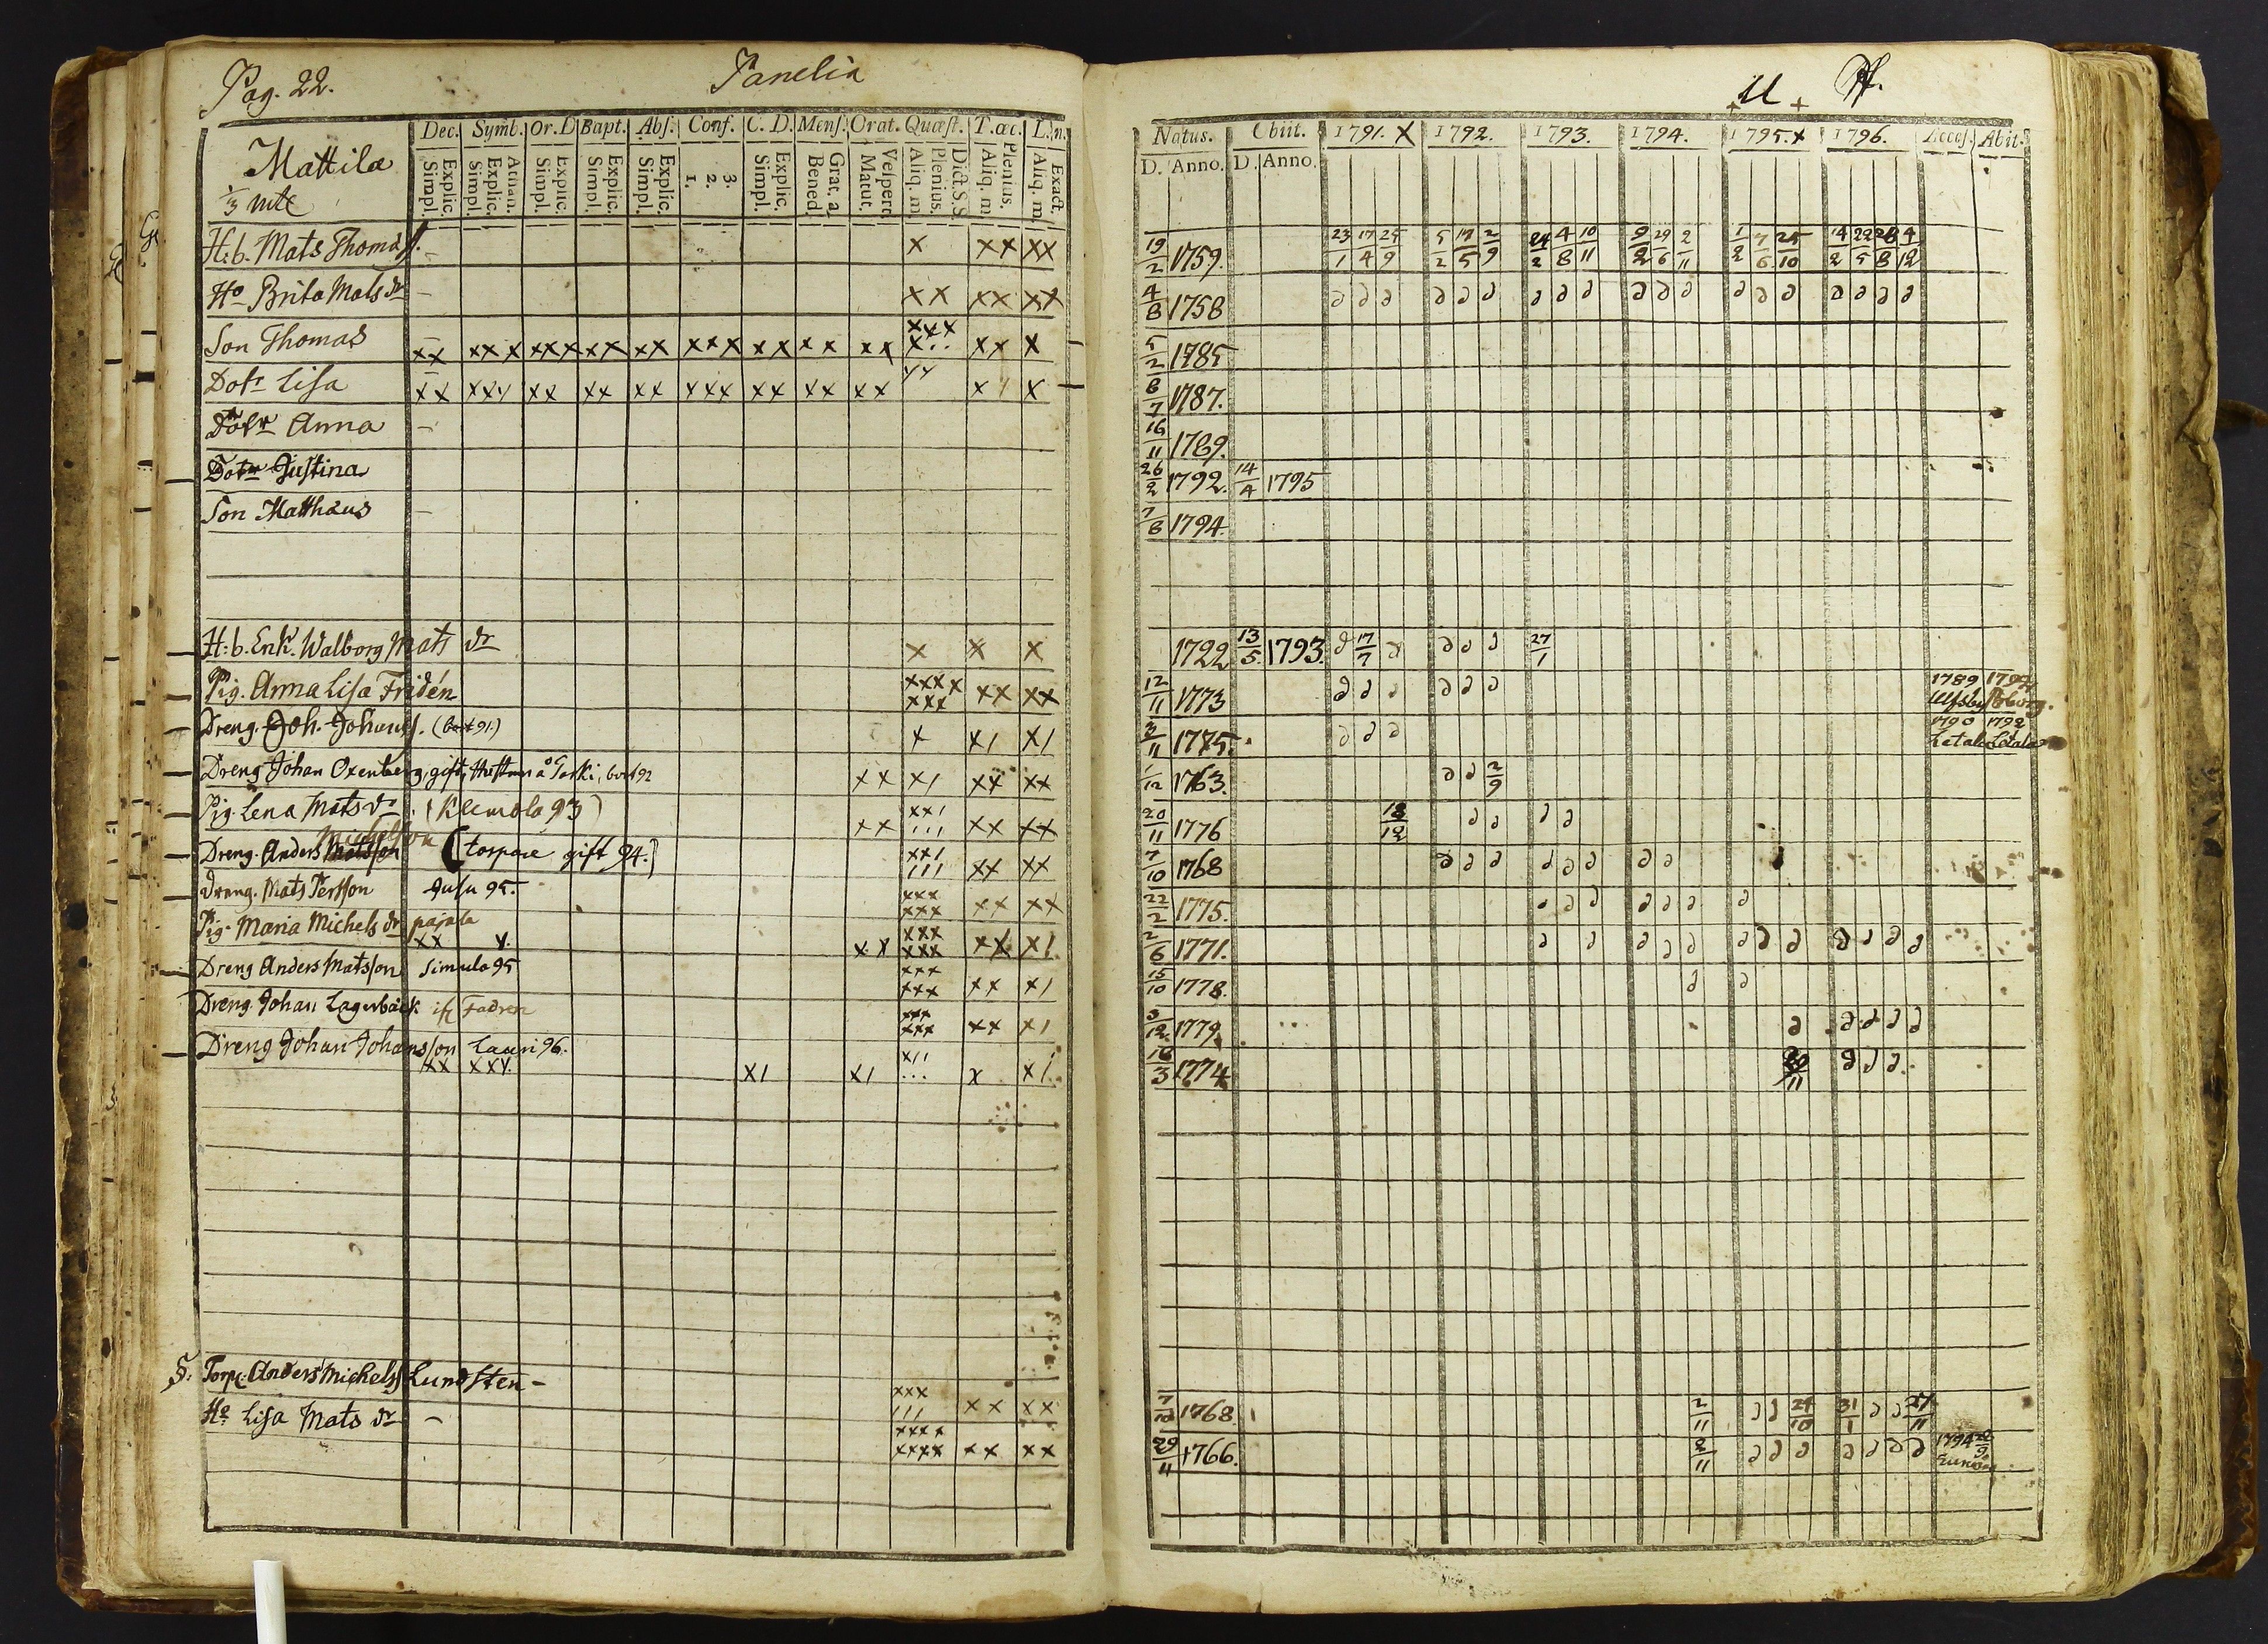 Pag. 22. Panelia
Mattila
1/3 mtl
Dec. Symb. Or. D Bapt. Abs. Conf. C. D. Mens. Orat. Quæst. T. æc. L. in.
Explic. Simpl. Athan. Explic. Simpl. Explic. Simpl. Explic. Simpl. Explic. Simpl. 3. 2. 1. Explic. Simpl. Grat. a. Bened. Vespert. Matut. Dict. S.S. Plenius. Aliq. m. Plenius. Aliq. m. Exact. Aliq. m.
Natus. Obiit. 1791. X 1792. 1793. 1794. 1795. + 1796. Access. Abit.
D. Anno. D. Anno.
H:b. Mats Thomass. – x xx xx 19/2 1759. 23/1 17/4 25/9 5/2 19/5 2/9 24/2 4/8 10/11 9/2 29/6 2/11 1/2 7/6 25/10 14/2 22/5 28/8 4/12
Ho Brita Mats dr – xx xx xx 4/8 1758
Son Thomas – xx xxx xxx xx xx xxx xx xx xx xxx x.. xx x 5/2 1785
Dotr Lisa – xx xxx xx xx xx xxx xx xx xx xx x/ x 8/7 1787.
Dotr Anna – 16/11 1789.
Dotr Justina 26/2 1792. 14/4 1795
Son Matthæus – 7/8 1794.
H:b. Enk. Walborg Mats dr x x x 1722 13/5 1793. 17/7 27/1
Pig. Anna Lisa Fridén xxxx xxx xx xx 12/11 1773 1789 Ulfsby 1792
Dreng. Joh. Johanss. (bort 91.) x x/ x/ 3/11 1775. 1790 1792
Dreng Johan Oxenberg, gift, Hustrun å Taski, bort 92 xx x/ xx xx 1/12 1763. 2/9
Pig. Lena Mats dr (Klemola 93) xx xx/ /// xx xx 20/11 1776 18/12
Michelsson
Dreng. Anders Matsson (torpare gift 94.) xx/ /// xx xx 7/10 1768
Dreng. Mats Persson Jusu 95. xxx xxx xx xx 22/2 1775.
Pig. Maria Michels dr pajala xx x. xx xxx xxx xx x/ 2/6 1771.
Dreng Anders Matsson Simula 95 xxx xxx xx x/ 15/10 1778.
Dreng. Johan Lagerbäck Fadren xxx xxx xx x/ 3/12 1779.
Dreng Johan Johansson Lauri 96. xx xxx. x/ x/ x// ... x x/ 16/3 1774 /11
§. Torp. Anders Michelss Lundsten – xxx /// xx xx 7/10 1768 2/11 24/10 31/1 27/11
Ho Lisa Mats dr – xxxx xxxx xx xx 29/11 1766. 2/11 1794